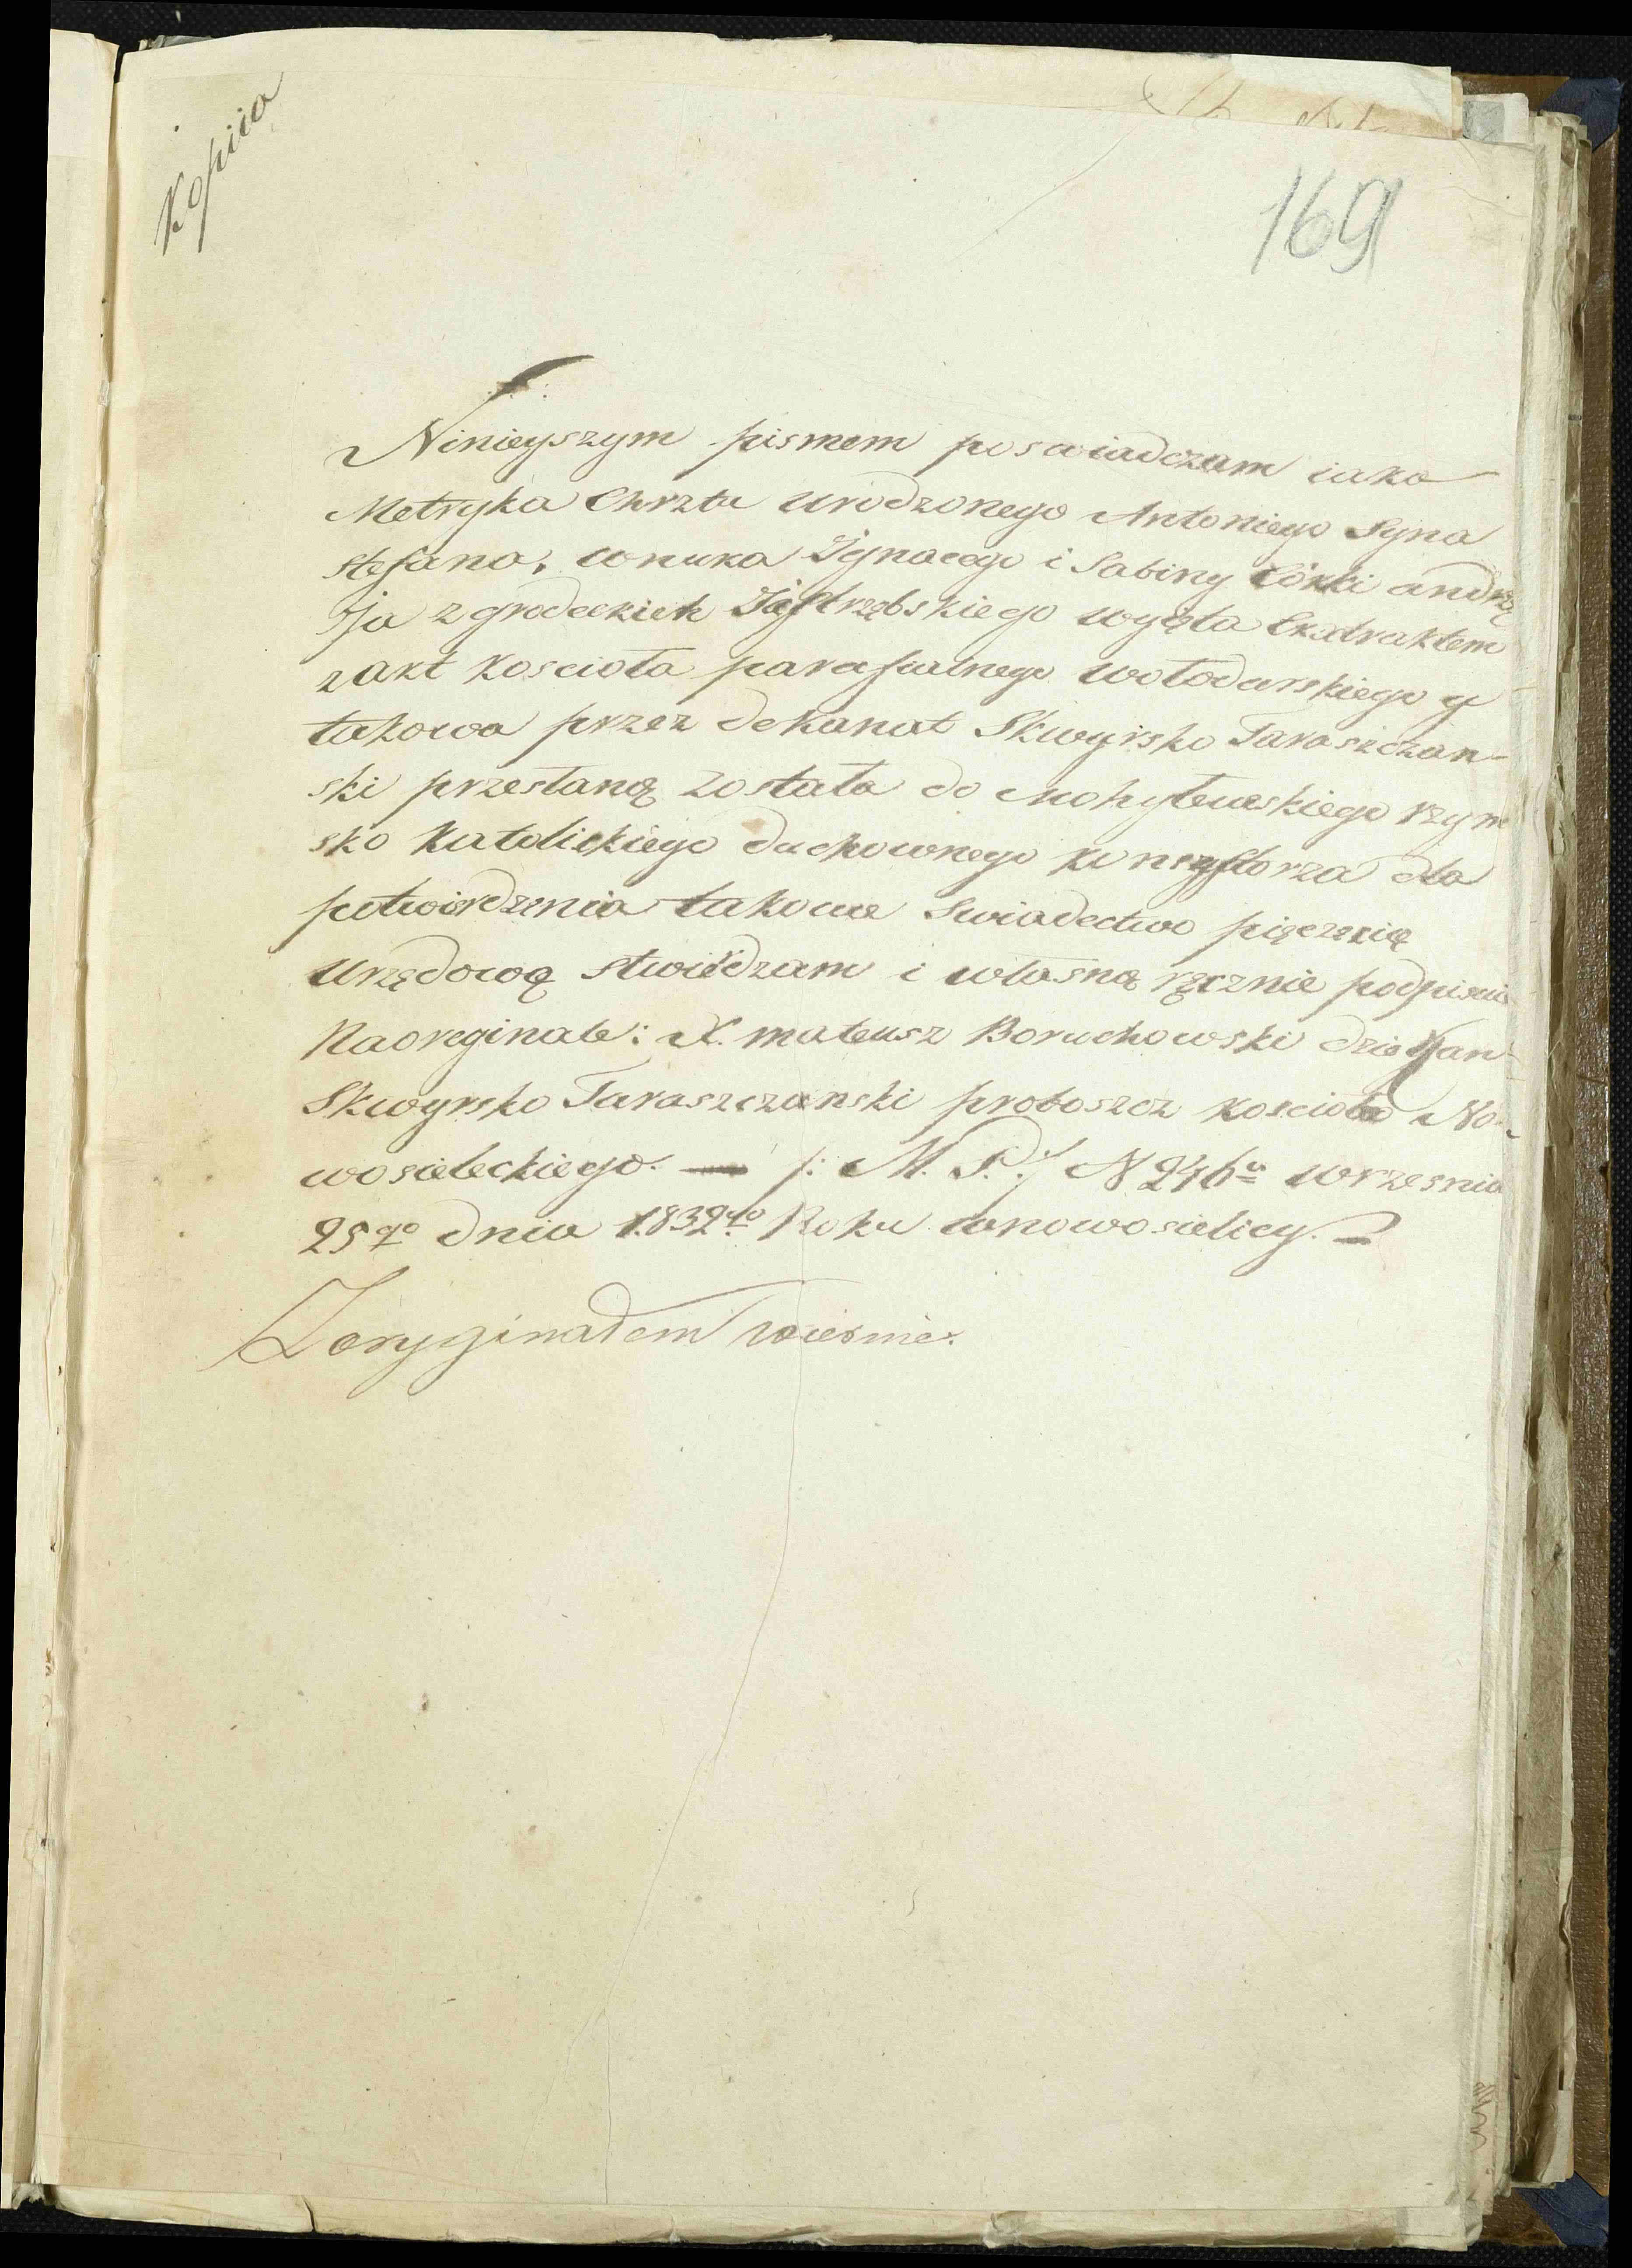 Kopiia
169
Ninieyszym pismem poswiadczam iako
Metryka Chrztu Urodzonego Antoniego Syna
Stefana, wnuka Ignacego i Sabiny Córki andrze
Ja z grodeckich Jastrzębskiego wyięta Exstraktem
z akt Koscioła parafialnego Wołodarskiego y
takowa przez deKanat Skwyrsko Taraszczan-
ski przesłaną została do Mohylewskiego rzym
sko Katolickiego duchownego Konsystorza dla
potwierdzenia takowe Swiadectwo pięczęnię
Urzędową stwierdzam i własną ręcznie podpisuie
Naoreginale: X. mateusz Boruchowski dzieKan
Skwyrsko Taraszczanski proboszcz koscioła No-
wosieleckiego. — /: M. P. :/ N 246 wrzesnia
25go dnia 1832go Roku wnowosielicy. —
Zoryginałem wiernie.